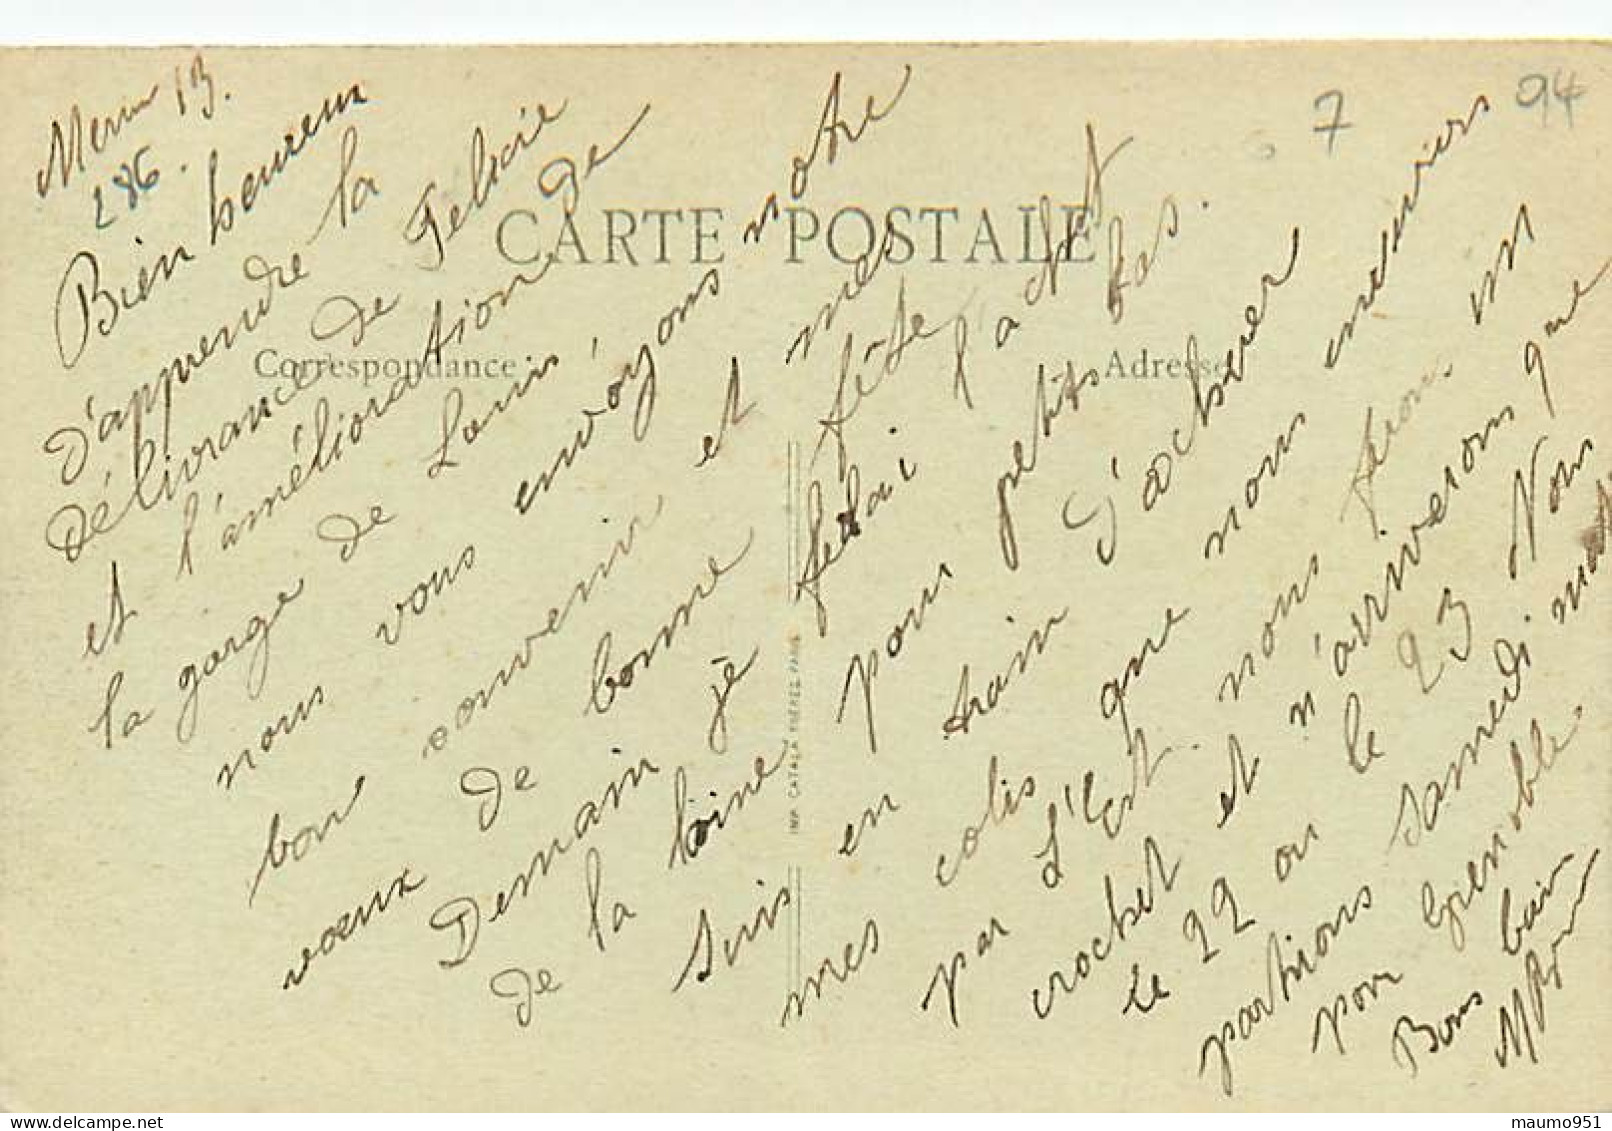 13.
286.
7
94
CARTE POSTALE
Correspondance
Adresse
Bien heureux
d'apprendre la
délivrance de Felicie
et l'amélioration de
la gorge de Louis,
nous vous envoyons notre
bon souvenir et mes
vœux de bonne fête
Demain je ferai l'achat
de la laine pour petits bas.
Suis en train d'achever
mes colis que nous menviers
par L'Est. nous ferons un
crochet et n'arriverons que
le 22 ou le 23 Nous
partirions samedi
pour Grenoble
Bons
IMP. CATALA FRÈRES PARIS
delcampe.net
maumo951